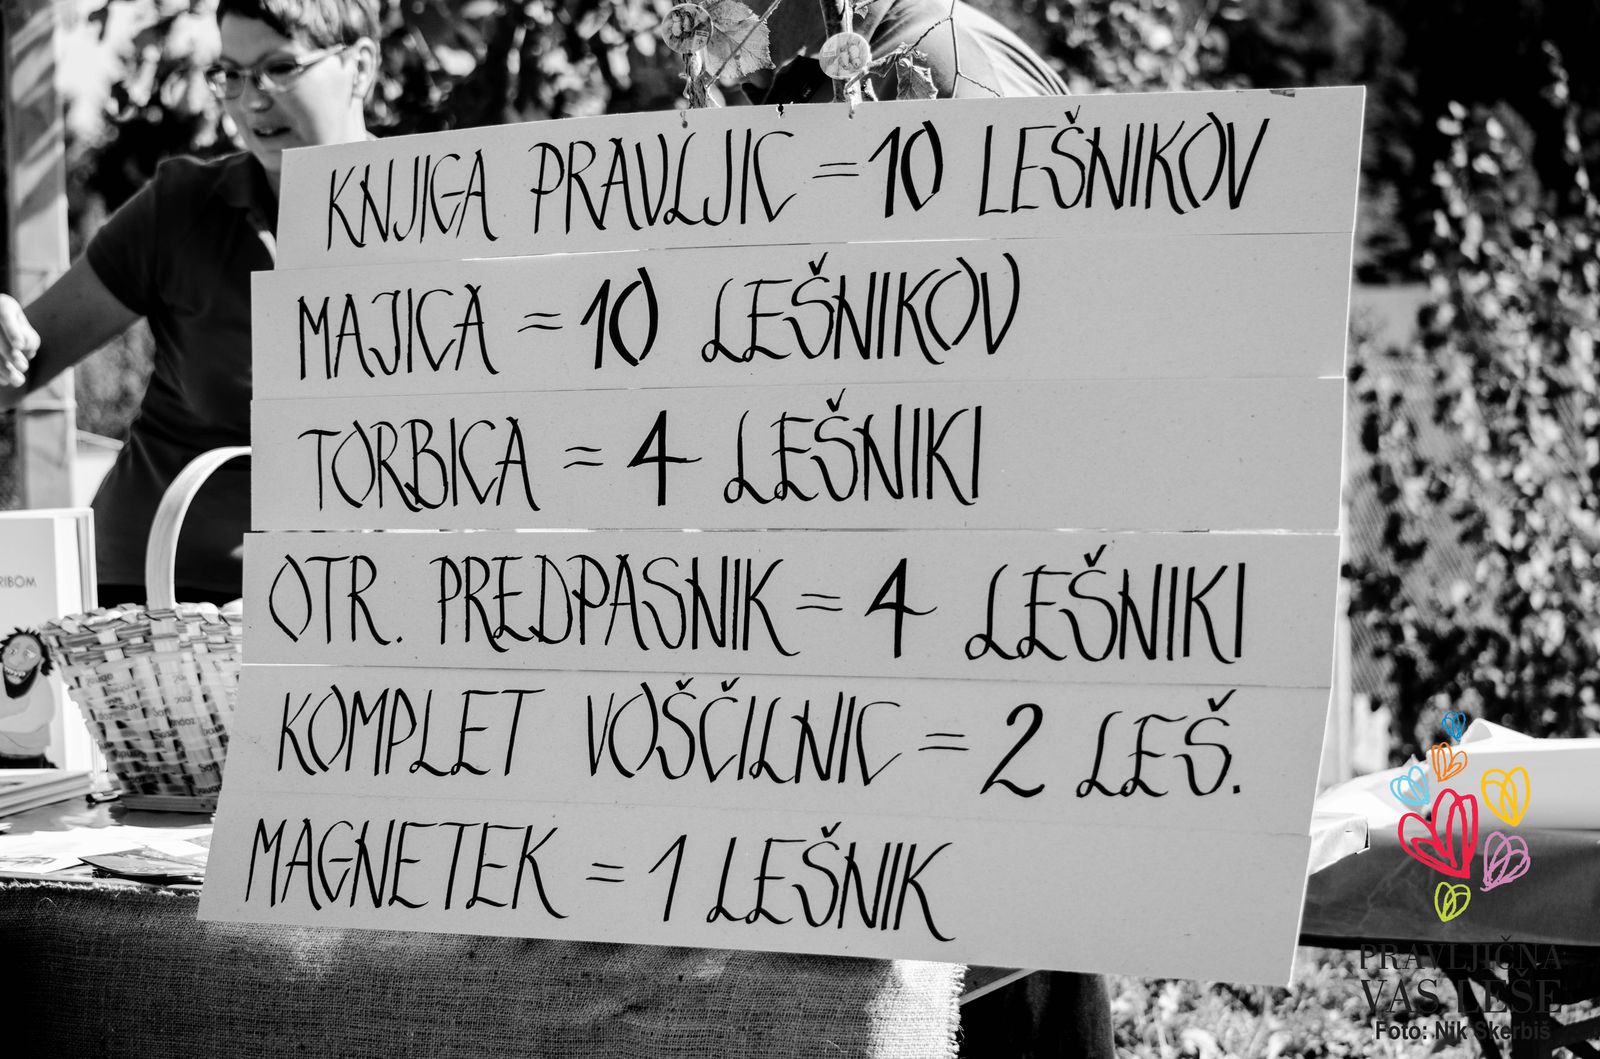 KNJIGA PRAVLJIC = 10 LEŠNIKOV
MAJICA = 10 LEŠNIKOV
TORBICA = 4 LEŠNIKI
OTR. PREDPASNIK = 4 LEŠNIKI
KOMPLET VOŠČILNIC = 2 LEŠ.
MAGNETEK = 1 LEŠNIK
RIBOM
PRAVLJIČNA
VAS LEŠE
Foto: Nik Skerbiš